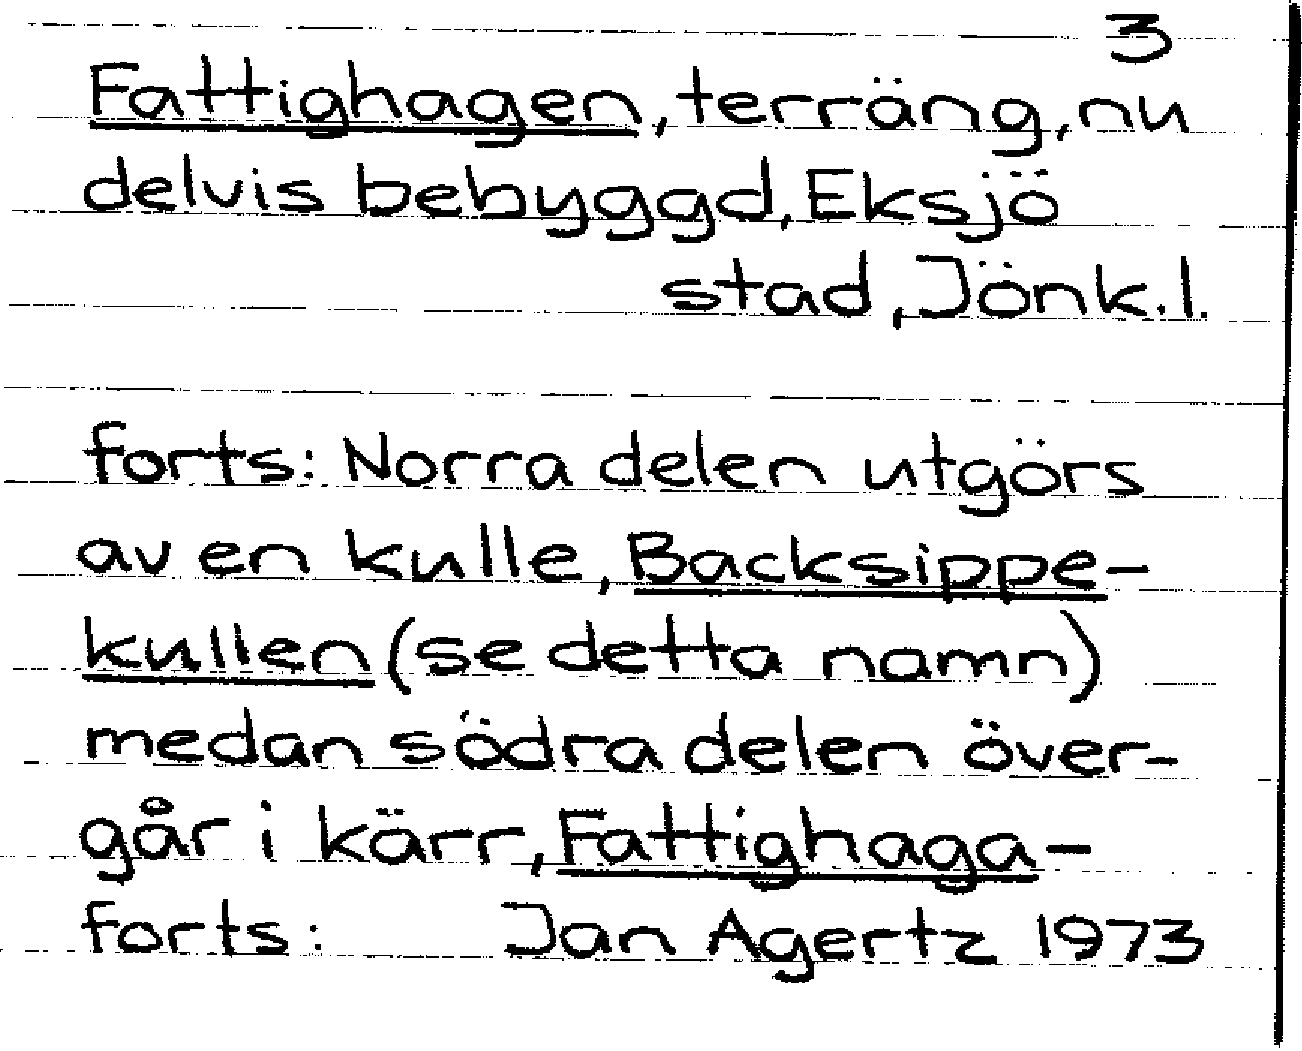 3
Fattighagen, terräng, nu
delvis bebyggd, Eksjö
stad, Jönk. l.
forts: Norra delen utgörs
av en kulle, Backsippe-
kullen (se detta namn)
medan södra delen över-
går i kärr, Fattighaga-
forts: Jan Agertz 1973